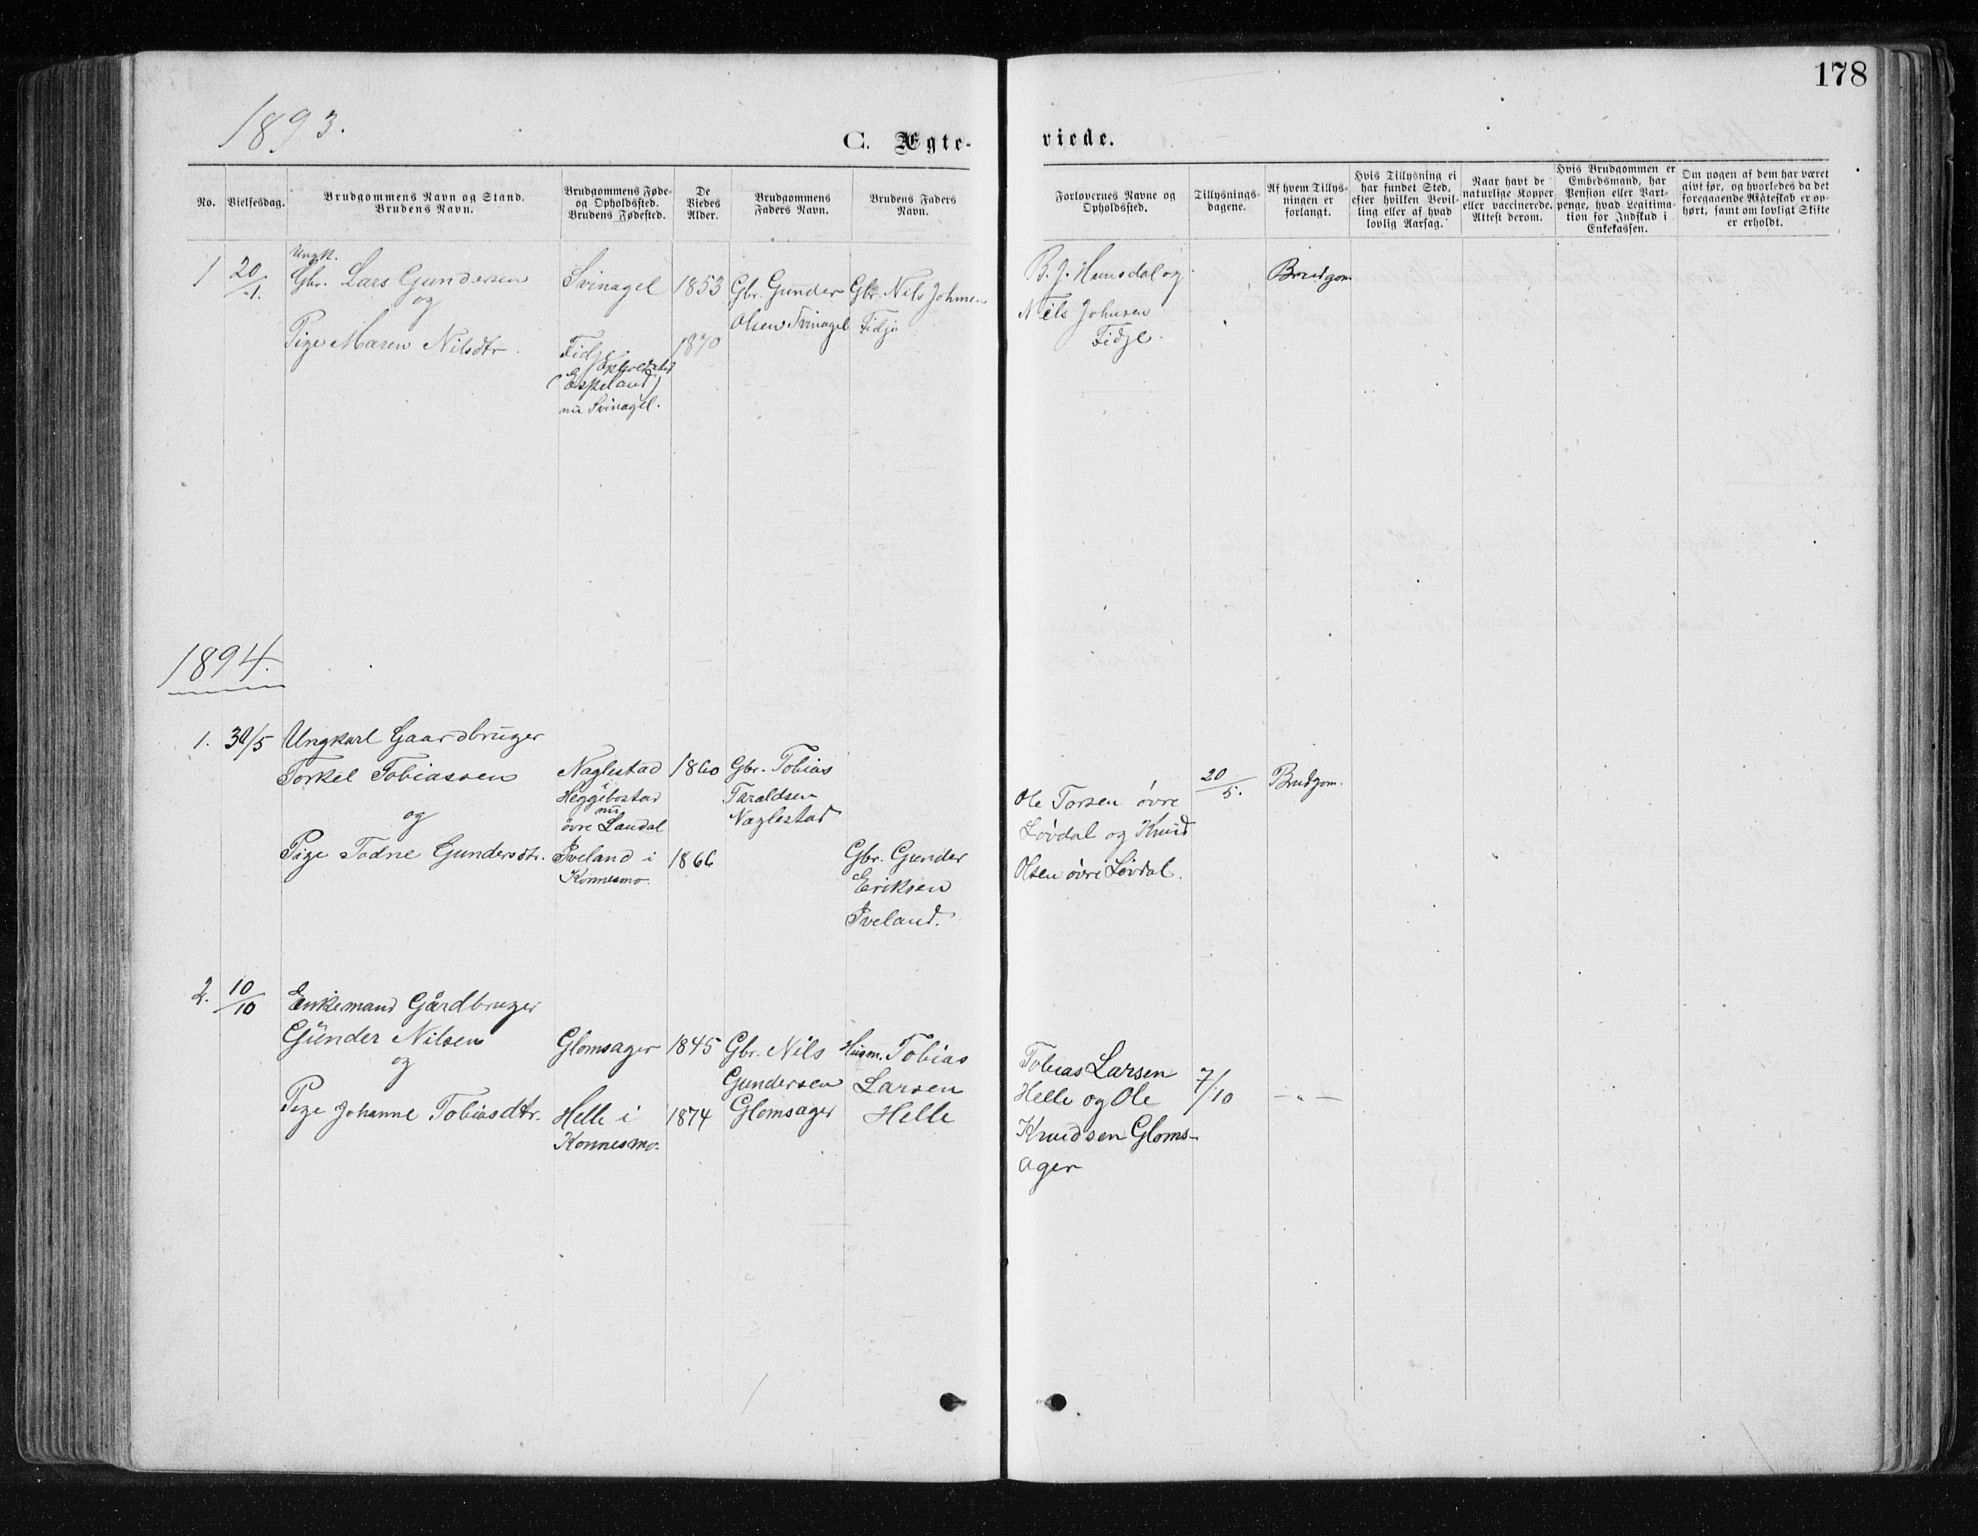 178
1893.
C. Ægte-
viede.
No.
Vielsesdag.
Brudgommens Navn og Stand.
Brudens Navn.
Brudgommens Føde-
og Opholdssted.
Brudens Fødested.
De
Viedes
Alder.
Brudgommens
Faders Navn.
Brudens Faders
Navn.
Forlovernes Navne og
Opholdssted.
Tillysnings-
dagene.
Af hvem Tillys-
ningen er
forlangt.
Hvis Tillysning ei
har fundet Sted,
efter hvilken Bevil-
ling eller af hvad
lovlig Aarsag.
Naar havt de
naturlige Kopper
eller vaccinerede.
Attest derom.
Hvis Brudgommen er
Embedsmand, har
Pension eller Vart-
penge, hvad Legitima-
tion for Indskud i
Enkekassen.
Om nogen af dem har været
givt før, og hvorledes da det
foregaaende Ægteskab er op-
hørt, samt om lovligt Skifte
er erholdt.
1
20/1.
Ungk.
Gbr. Lars Gundersen
og
Pige Maren Nilsdtr.
Svinagel
Fidje
Opholdssted
(Espeland)
nu Svinagel.
1853
1870
Gbr. Gunder
Olsen Svinagel
Gbr. Nils Johnsen
Fidje
B. J. Homsdal og
Nils Johnsen
Fidje.
Brudgom
1894.
1.
30/5
Ungkarl Gaardbruger
Torkel Tobiassen
og
Pige Todne Gundersdtr.
Naglestad
Heggibostad
nu
øvre Laudal
Iveland i
Konnesmo.
1860
1866
Gbr. Tobias
Taraldsen
Naglestad
Gbr. Gunder
Eriksen
Iveland.
Ole Torsen øvre
Løvdal og Knud
Olsen øvre Løvdal.
20/5.
Brudgom.
2.
10/10
Enkemand Gårdbruger
Gunder Nilsen
og
Pige Johanne Tobiasdtr.
Glomsager
Helle i
Konnesmo.
1845
1874
Gbr. Nils
Gundersen
Glomsager
Husm. Tobias
Larsen
Helle
Tobias Larsen
Helle og Ole
Knudsen Gloms-
ager
7/10
— „ —